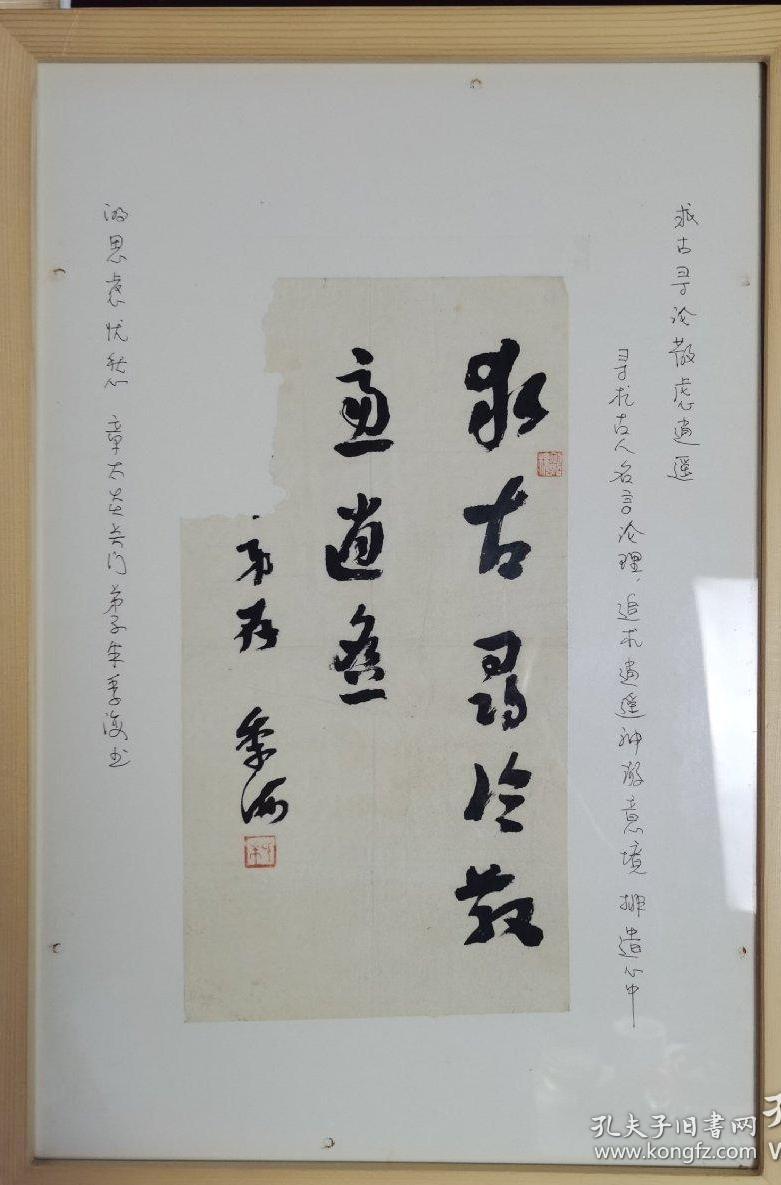 求古寻论散虑逍遥
寻找古人名言论理，追求逍遥神游意境 排遣心中
求古尋论散
慮逍遥
季海
的思虑忧愁 章太炎关门弟子朱季海书
孔夫子旧书网
www.kongfz.com